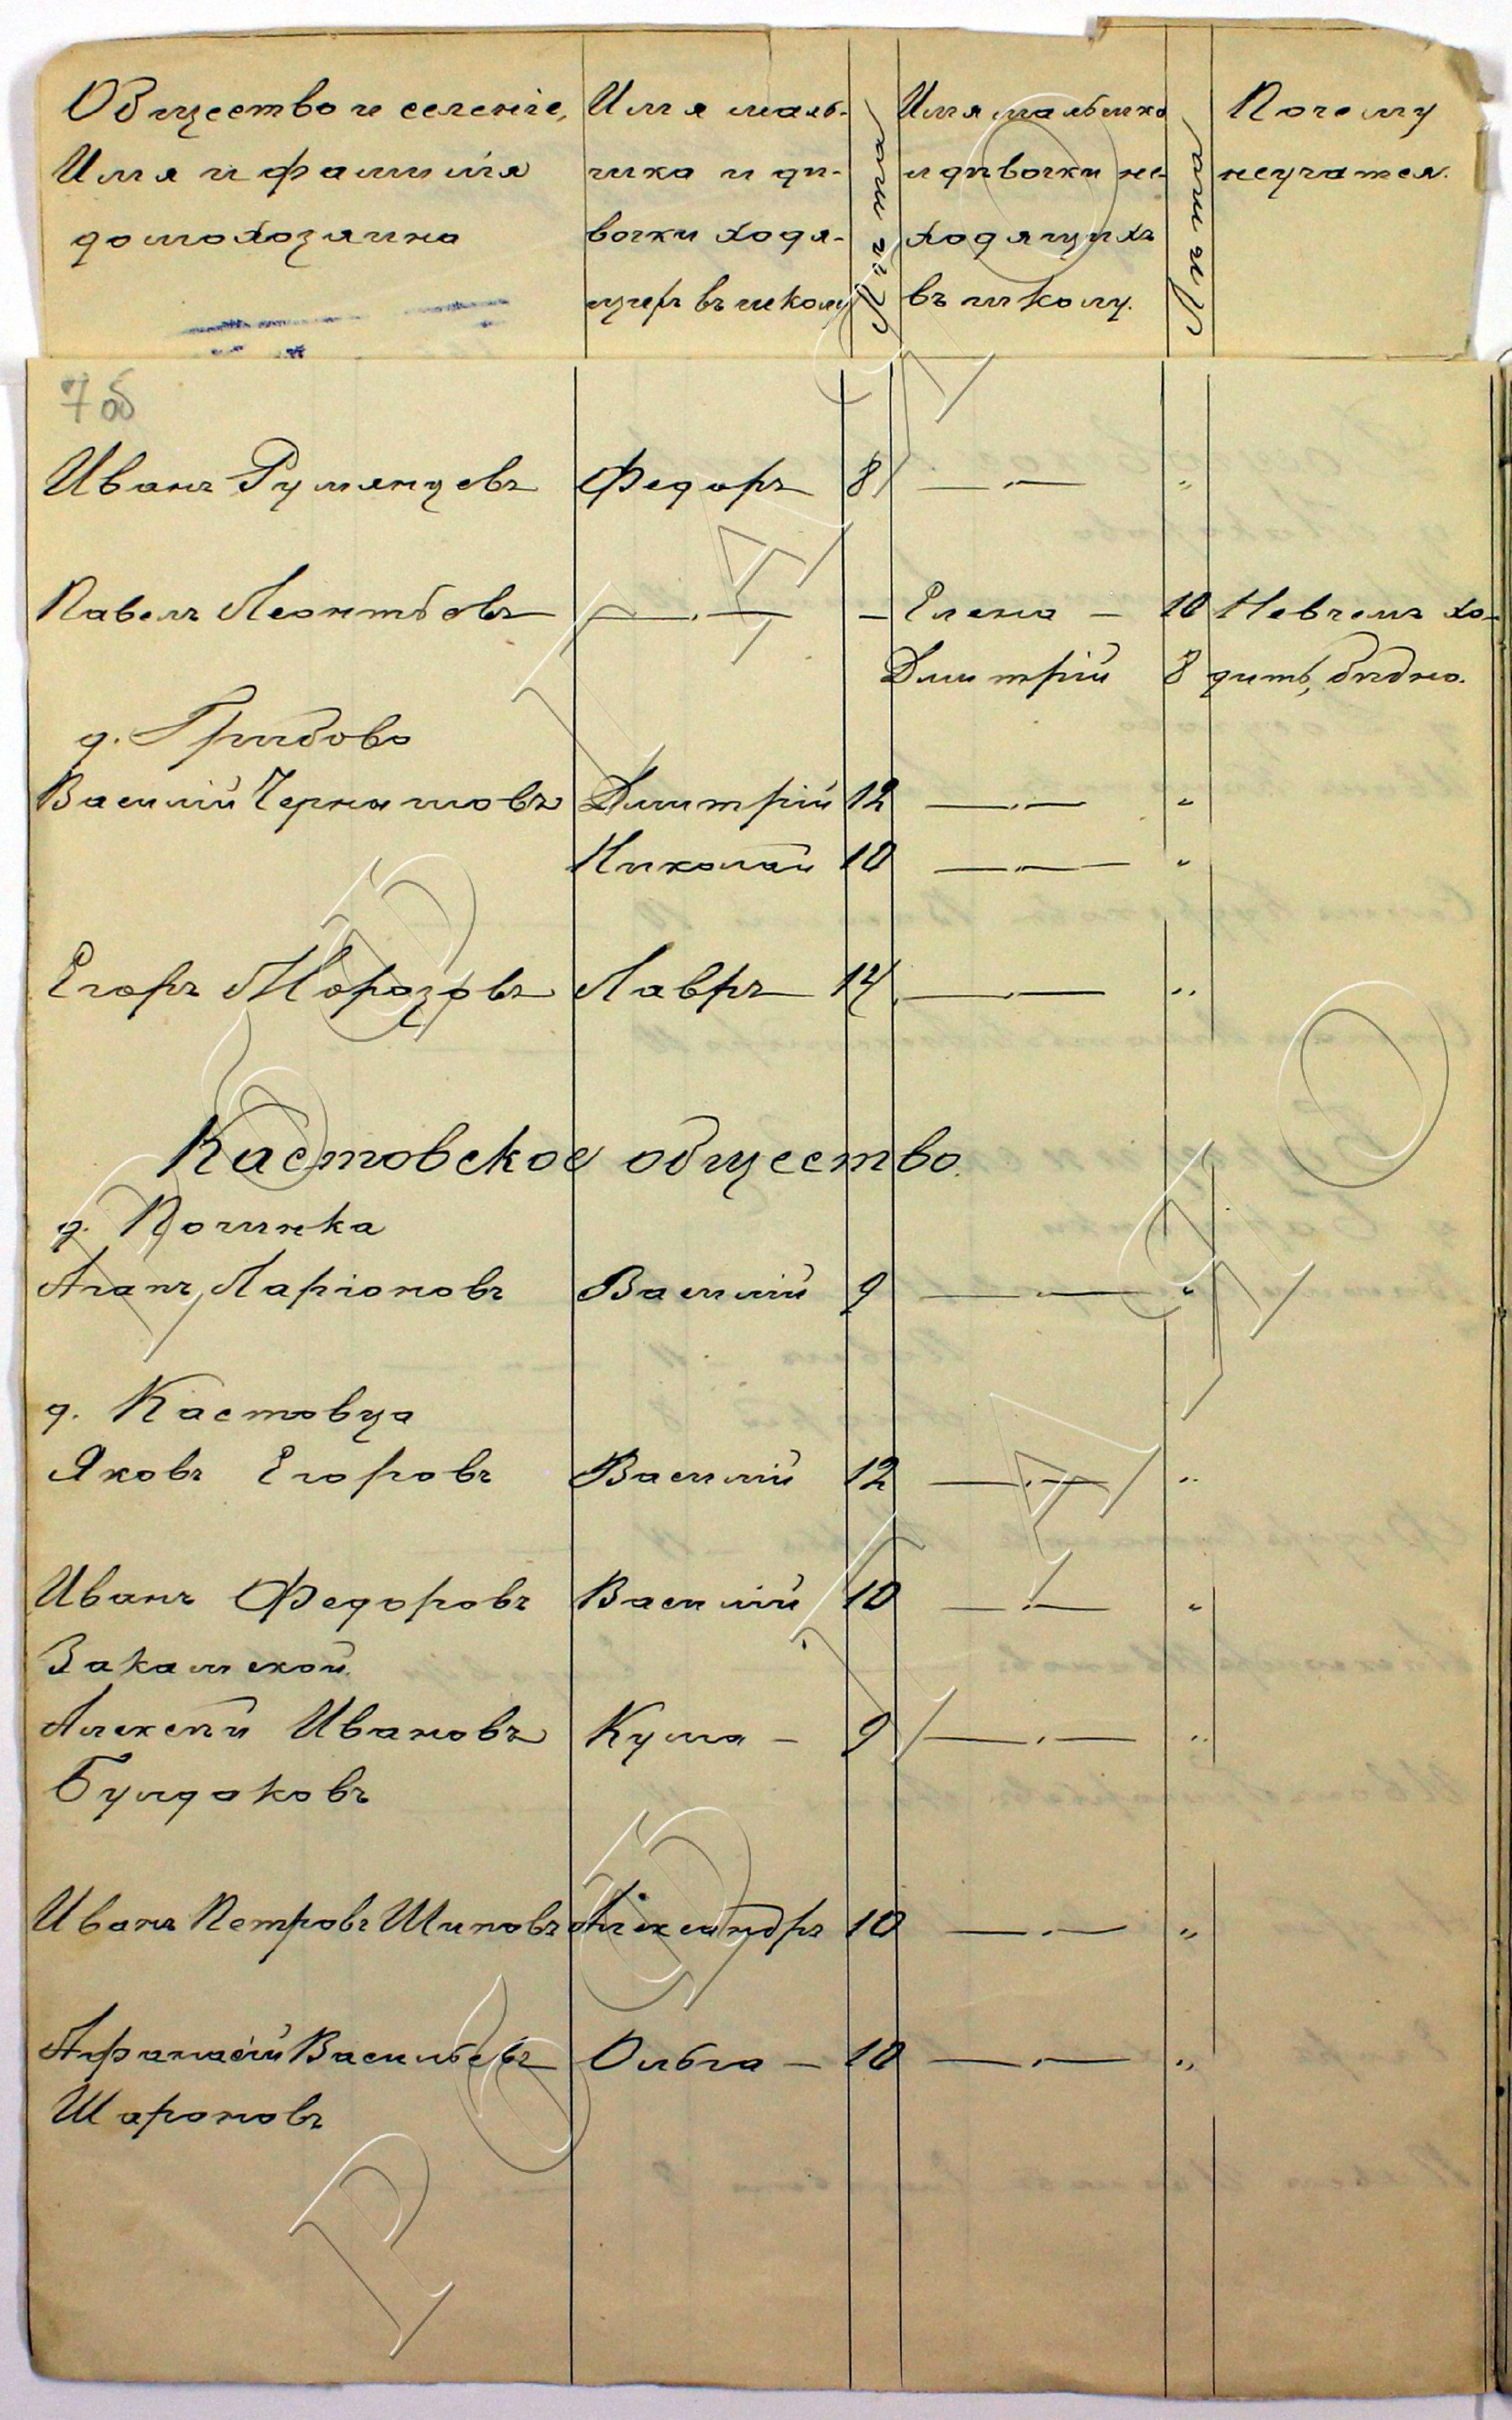 Общество и селеніе, Имя маль- Имя мальчика Почему
Имя и фамилія чика и дѣ- Лѣта и дѣвочки не- Лѣта неучатся.
домохозяина вочки ходя- ходящихъ
щихъ въ школу въ школу.
7 об
Иванъ Румянцевъ Федоръ 8 —„— „
Павелъ Леонтьевъ —„— – Елена – 10 Невчемъ хо-
Дмитрій 8 дить, бѣдно.
д. Грибово
Василій Чернышовъ Дмитрій 12 —„— „
Николай 10 —„— „
Егоръ Морозовъ Лавръ 14 —„— „
Кастовское общество.
д. Починка
Агапъ Ларіоновъ Василій 9 —„— „
д. Кастовца
Яковъ Егоровъ Василій 12 —„— „
Иванъ Федоровъ Василій 10 —„— „
Закамской.
Алексѣй Ивановъ Кузма – 9 —„— „
Булдаковъ
Иванъ Петровъ Шиповъ Александръ 10 —„— „
Афанасій Васильевъ Ольга – 10 —„— „
Шароновъ